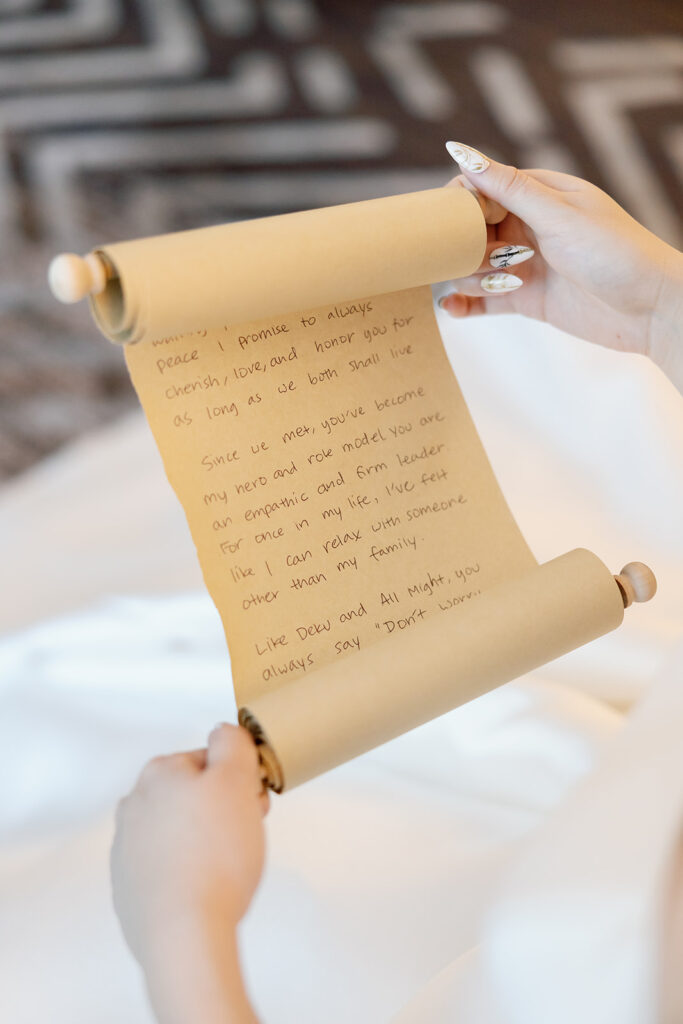 peace I promise to always
cherish, love, and honor you for
as long as we both shall live
Since we met, you've become
my hero and role model you are
an empathic and firm leader.
For once in my life, I've felt
like I can relax with someone
other than my family.
Like Deku and All Might, you
always say "Don't worry